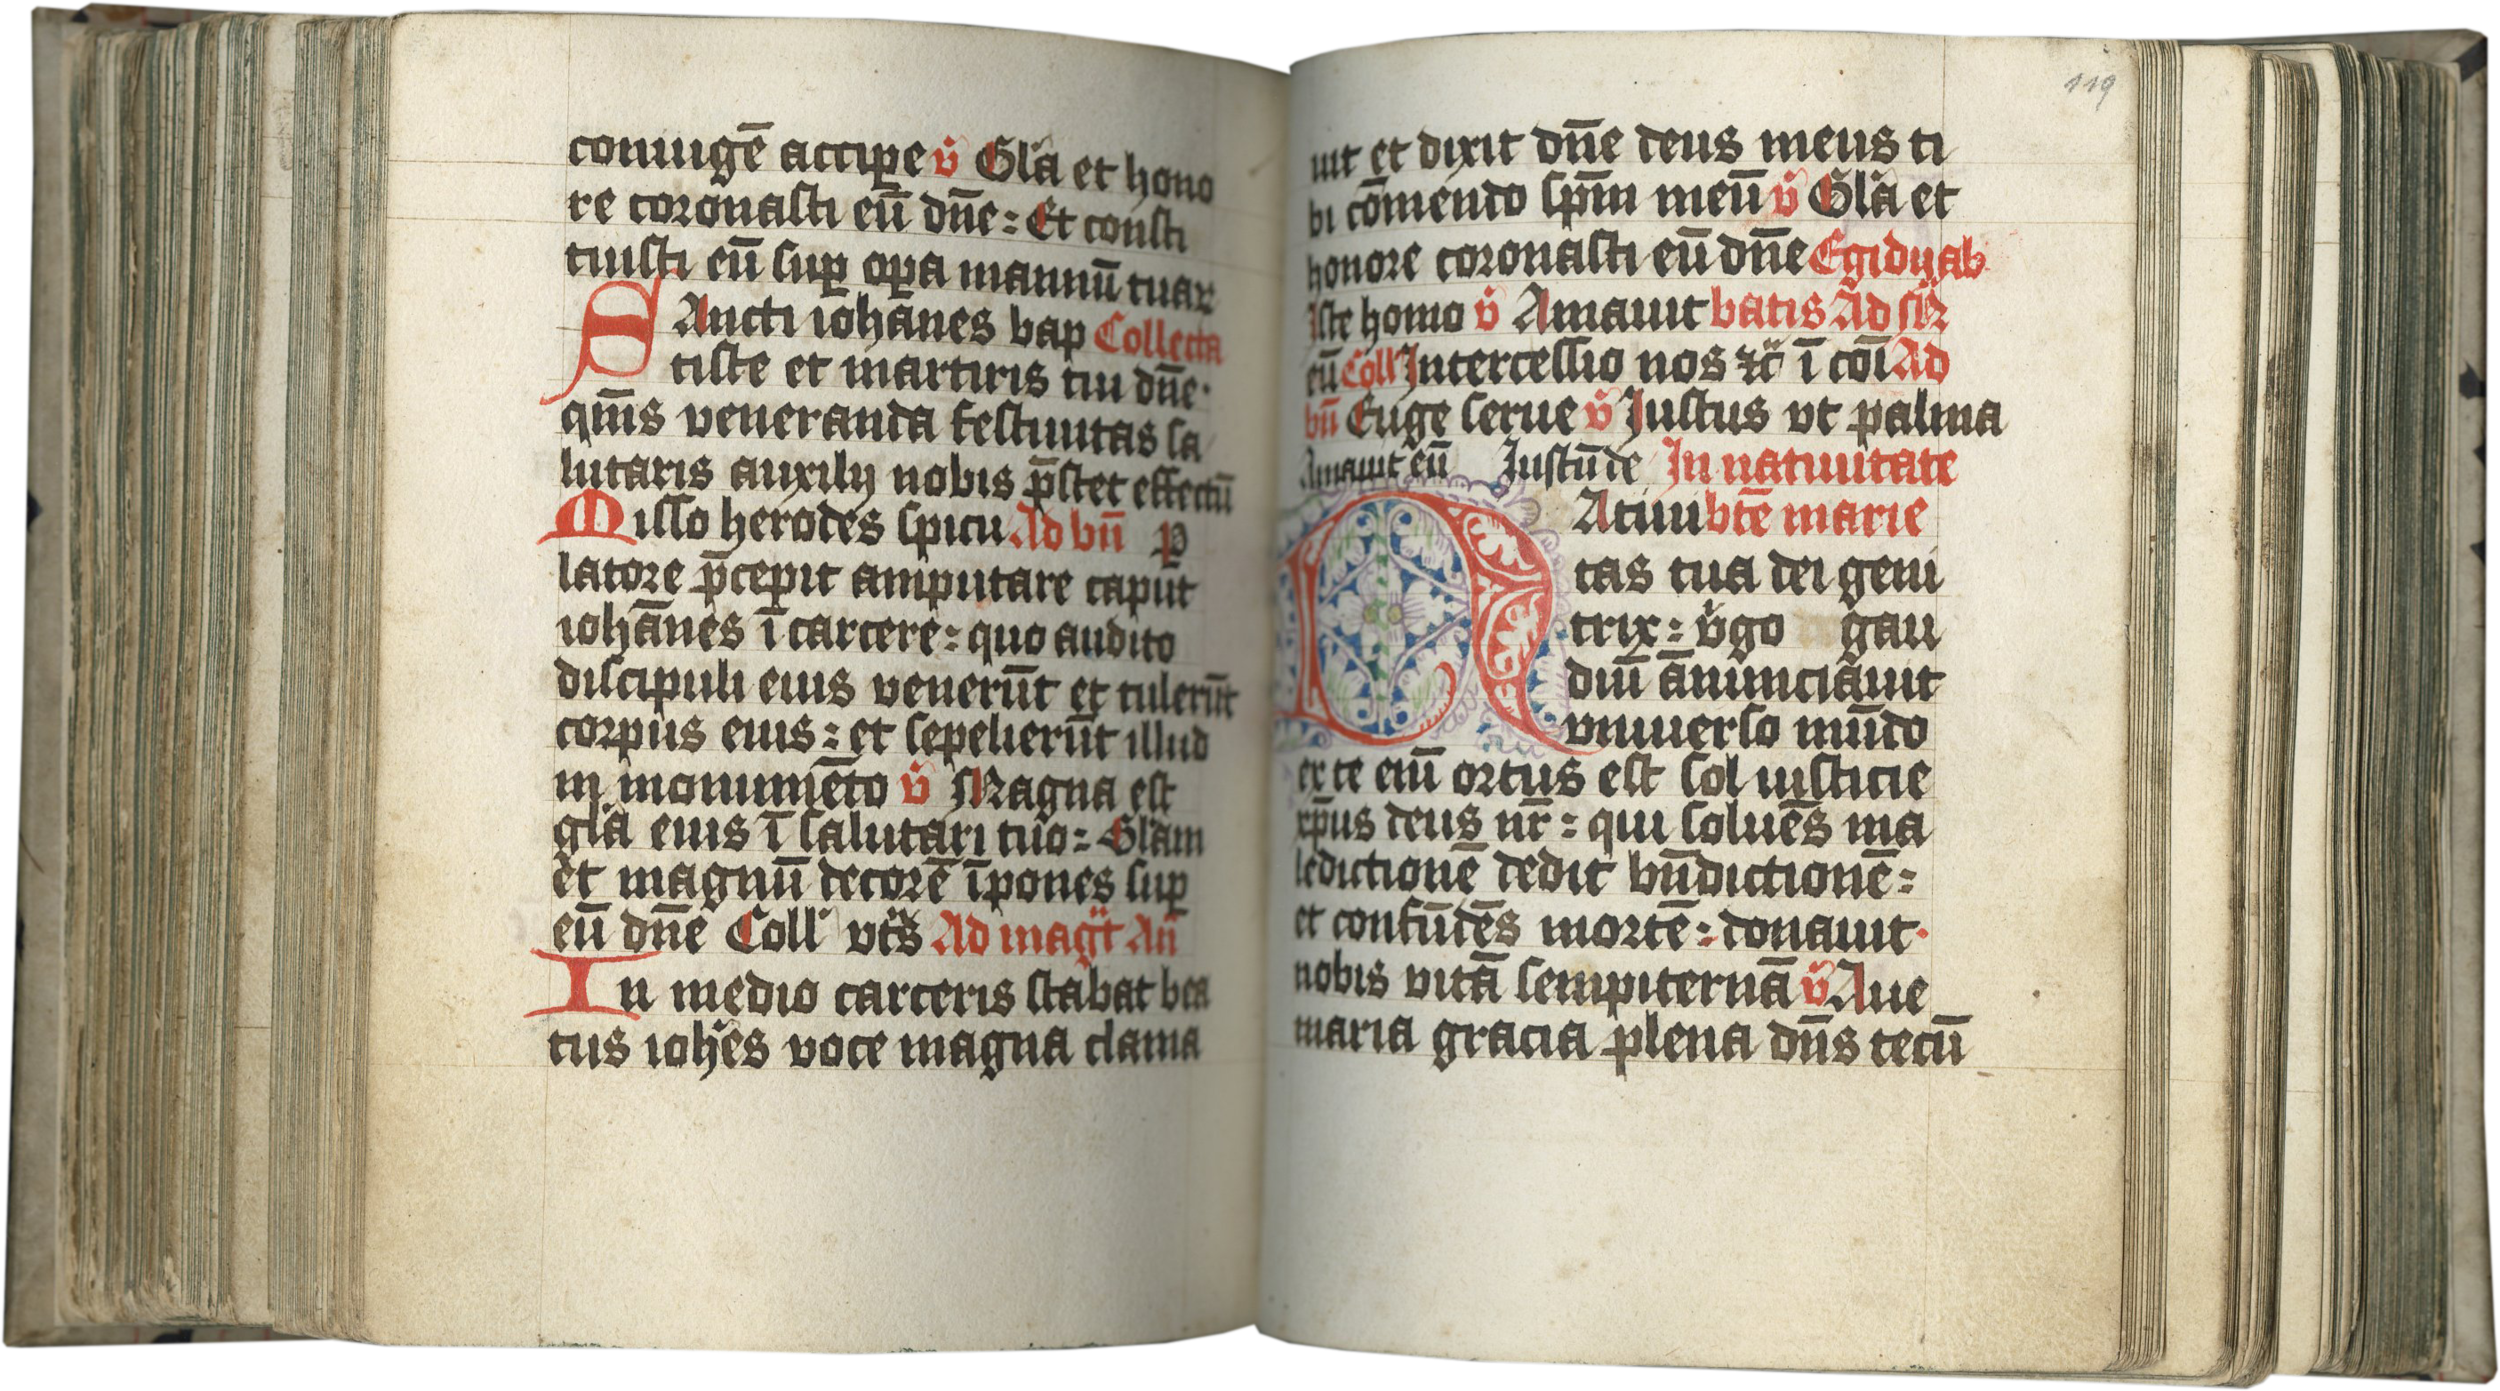 coniugē accipe v̄ Gl̄a et hono
re coronasti eū dn̄e : Et consti
tuisti eū sup̱ op̱a manuū tuaꝝ
SAncti ioha̅nes bap Collecta
tiste et martiris tui dn̄e ·
qm̄s veneranda festiuitas sa
lutaris auxilij nobis p̄stet effectū
Misso herodes spicu Ad bn̄ p
latore p̄cepit amputare caput
ioha̅nes ī carcere : quo audito
discipuli eius venerūt et tulerūt
corpus eius : et sepelierūt illud
in monumēto v̄ Magna est
gl̄a eius ī salutari tuo : Gl̄am
et magnū decorē īpones sup
eū dn̄e Coll' vts̄ Ad mag̅t An̄
In medio carceris stabat bea
tus ioh̄es voce magna clama
119
uit et dixit dn̄e deus meus ti
bi cōmendo sp̄m meū v̄ Gl̄a et
honore coronasti eū dn̄e Egidij ab
Iste homo v̄ Amauit batis Ad
eū Coll' Intercessio nos ꝛc̄ ī cōi Ad
bn̄ Euge serue v̄ Iustus vt palma
Amauit eū Iustū de In natiuitate
NAtiui bt̄e marie
tas tua dei geni
trix : v̄go gau
diū a̅nunciauit
vniuerso mūdo
ex te eiū ortus est sol iusticie
xp̄us deus nr̄ : qui soluēs ma
ledictionē dedit bn̄dictionē :
et confūdēs mortē : donauit ·
nobis vitā sempiternā v̄ Aue
maria gracia plena dn̄s tecū